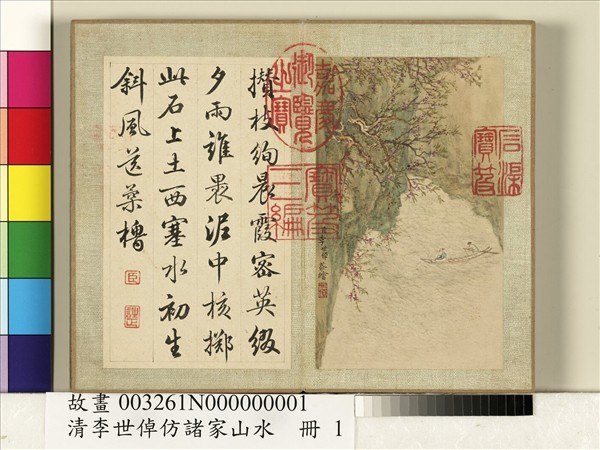 攢枝絢晨霞密英綴
夕雨誰畏泥中核擲
此石上土西塞水初生
斜風送柔櫓
臣
嘉慶御覽之寶
寶笈三編
石渠寶笈
故畫 003261N000000001
清李世倬仿諸家山水 冊 1